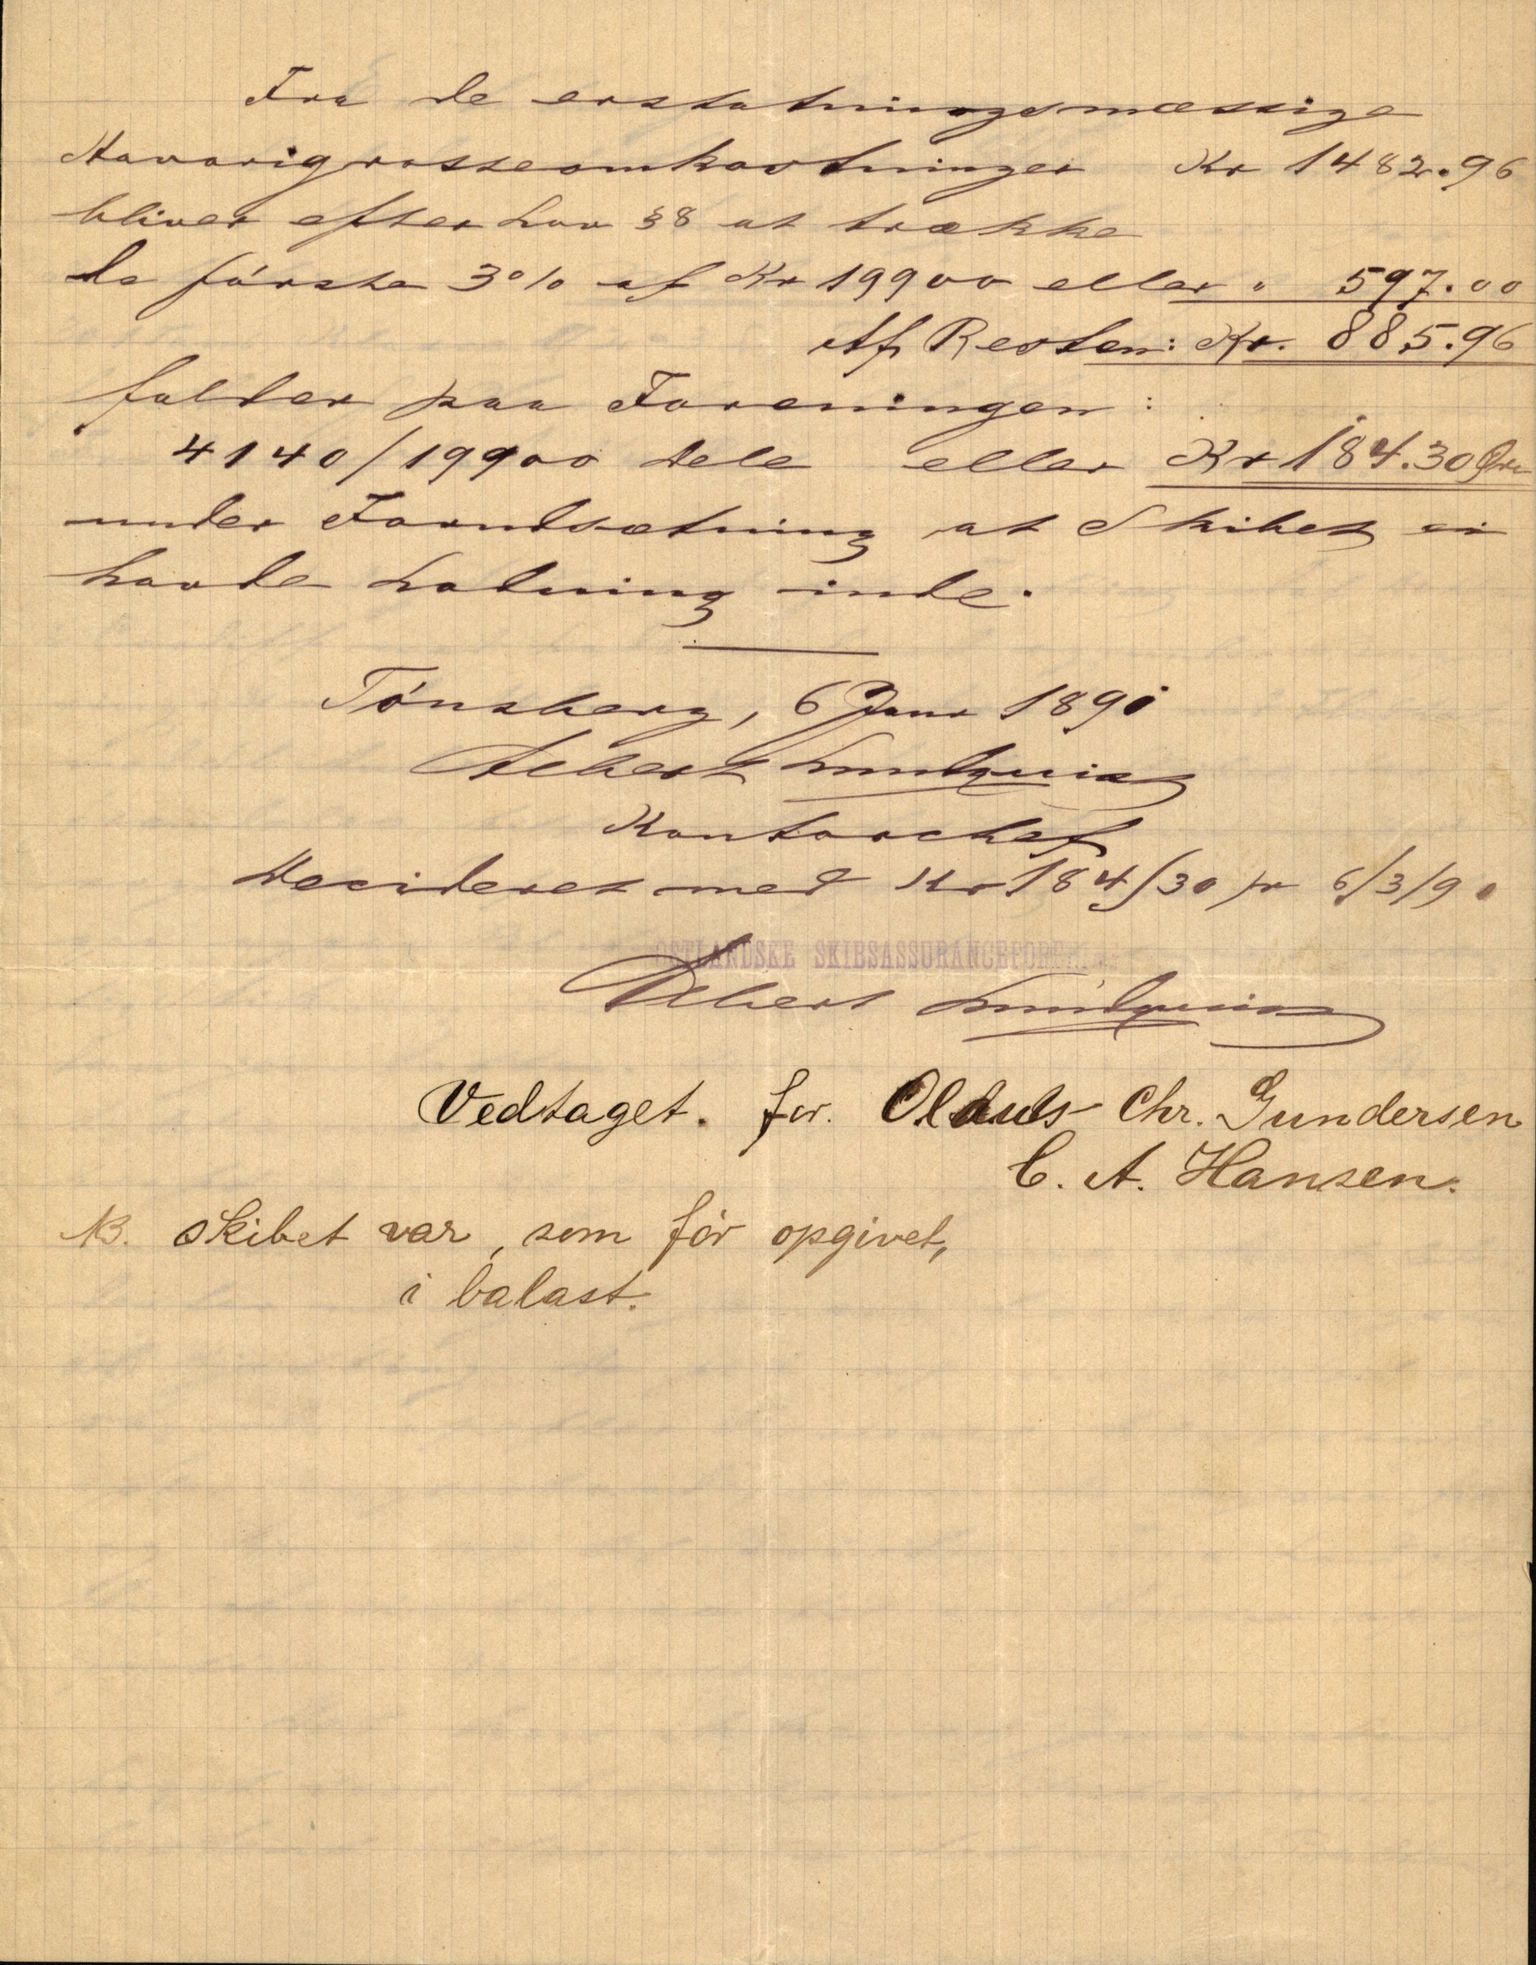 Fra de erstatningsmæssige
Havarigrosseomkostninger Kr 1482.96
bliver efter Lov §8 at trække
de första 3% af Kr 19900 eller " 597.00
Af Resten: Kr. 885.96
falder paa Foreningen:
4140/19900 Dele eller Kr 184.30 Øre
under Forudsætning at Skibet ei
havde Ladning inde.
Tönsberg, 6 Janr 1890
Albert Lundquist
Kontorchef
Decideret med Kr 184/30 pr 6/3/90
ØSTLANDSKE SKIBSASSURANCEFOREN.
Albert Lundquist
Vedtaget. for. Chr. Gundersen
C. A. Hansen.
NB. Skibet var, som för opgivet,
i balast.